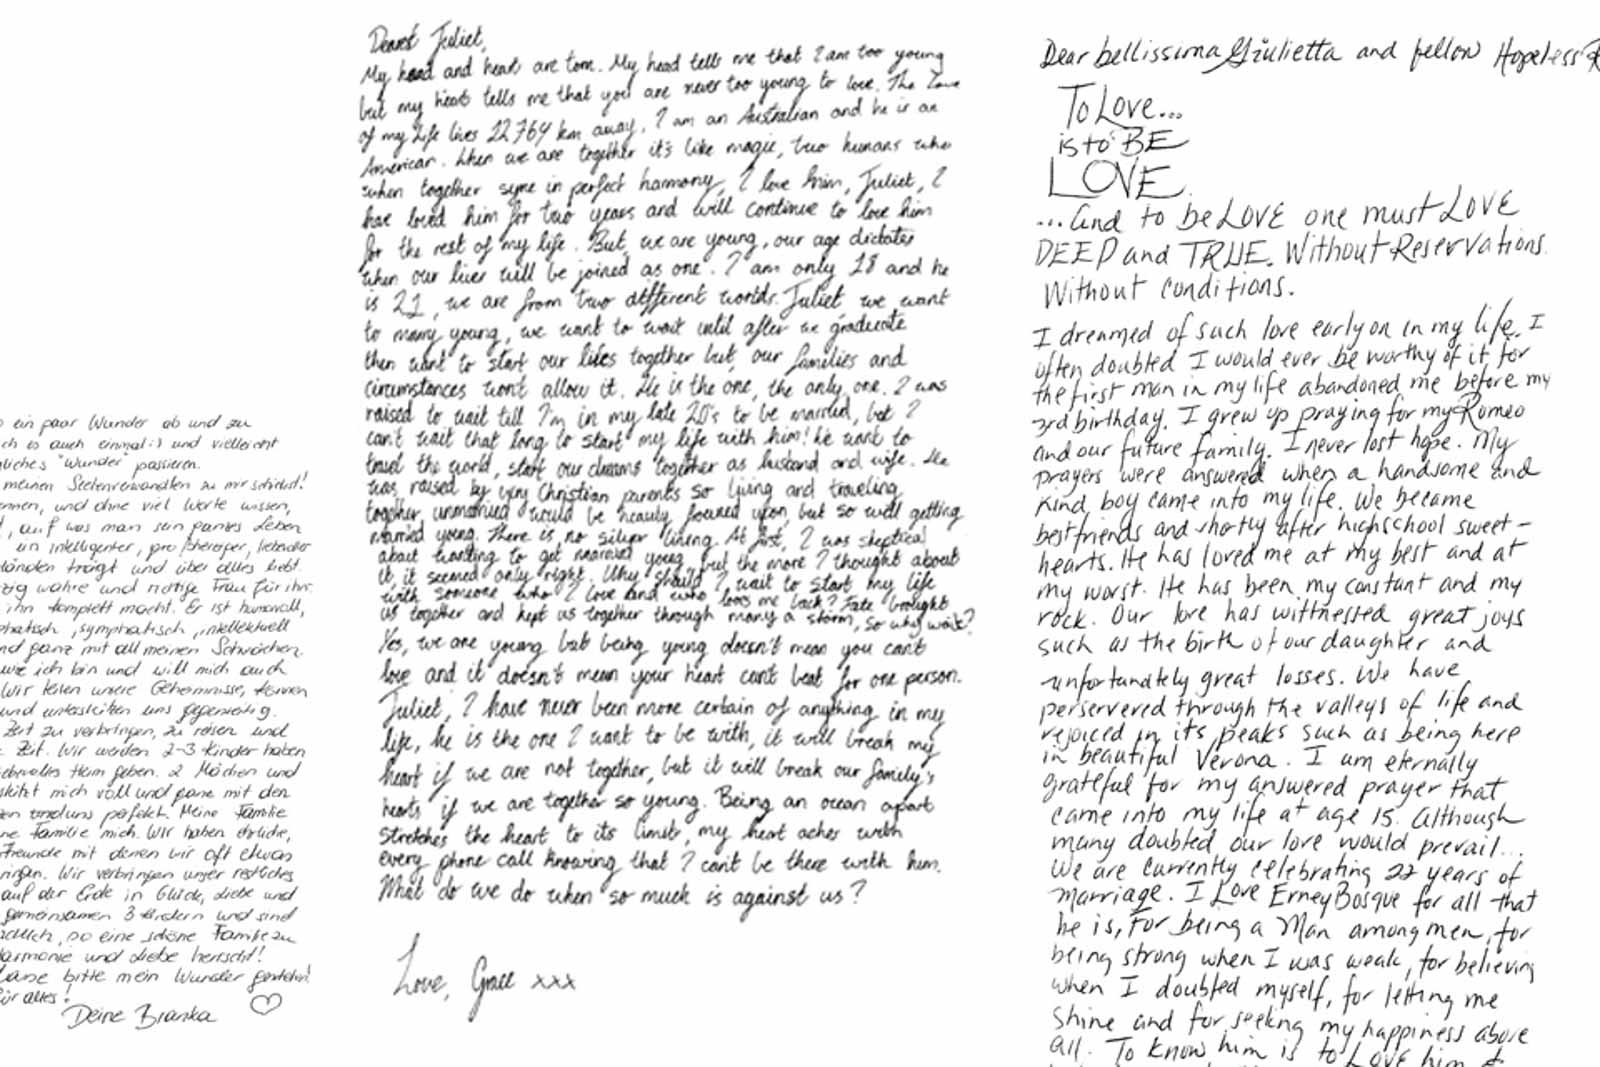 ein paar Wunder ab und zu
ch es auch einmal :) und vielleicht
liches "Wunder" passieren.
meinen Seelenverwandten zu mir schickst!
ennen, und ohne viel Worte wissen,
, auf was man sein ganzes Leben
ein intelligenter, liebender
Händen trägt und über alles liebt.
zig wahre und richtige Frau für ihn.
ihn komplett macht. Er ist humorvoll,
phatisch, symphatisch, intellektuell
nd ganz mit all meinen Schwächen.
wie ich bin und will mich auch
Wir teilen unsere Geheimnisse, kennen
und unterstützen uns gegenseitig.
Zeit zu verbringen, zu reisen und
Zeit. Wir werden 2-3 Kinder haben
ebevolles Heim geben. 2 Mädchen und
mich voll und ganz mit den
uns perfekt. Meine Familie
ne Familie mich. Wir haben ehrliche,
Freunde mit denen wir oft etwas
ringen. Wir verbringen unser restliches
auf der Erde in Glück, Liebe und
gemeinsamen 3 Kindern und sind
so eine schöne Familie zu
Harmonie und Liebe herrscht!
Lasse bitte mein Wunder geschehen!
für alles!
Deine Branka
Dearest Juliet,
My head and heart are torn. My head tells me that I am too young
but my heart tells me that you are never too young to love. The Love
of my Life lives 22764 km away. I am an Australian and he is an
American. When we are together it's like magic, two humans who
when together sync in perfect harmony, I love him, Juliet, I
have loved him for two years and will continue to love him
for the rest of my life. But, we are young, our age dictates
when our lives will be joined as one. I am only 18 and he
is 21, we are from two different worlds. Juliet we want
to marry young, we want to wait until after we graduate
then want to start our lives together but, our families and
circumstances won't allow it. He is the one, the only one. I was
raised to wait till I'm in my late 20's to be married, but I
can't wait that long to start my life with him! We want to
travel the world, start our dreams together as husband and wife. He
was raised by very Christian parents so living and traveling
together unmarried would be heavily frowned upon, but so will getting
married young. There is no silver lining. At first, I was skeptical
about wanting to get married young, but the more I thought about
it, it seemed only right. Why should I wait to start my life
with someone who I love and who loves me back? Fate brought
us together and kept us together through many a storm, so why wait?
Yes, we are young but being young doesn't mean you can't
love and it doesn't mean your heart can't beat for one person.
Juliet, I have never been more certain of anything in my
life, he is the one I want to be with, it will break my
heart if we are not together, but it will break our family's
hearts if we are together so young. Being an ocean apart
stretches the heart to its limits, my heart aches with
every phone call knowing that I can't be there with him.
What do we do when so much is against us?
Love, Grace xxx
Dear bellissima Giulietta and fellow Hopeless R
To Love...
is to BE
LOVE
...and to be LOVE one must LOVE
DEEP and TRUE. Without Reservations.
Without conditions.
I dreamed of such love early on in my life. I
often doubted I would ever be worthy of it for
the first man in my life abandoned me before my
3rd birthday. I grew up praying for my Romeo
and our future family. I never lost hope. My
prayers were answered when a handsome and
kind boy came into my life. We became
best friends and shortly after highschool sweet-
hearts. He has loved me at my best and at
my worst. He has been my constant and my
rock. Our love has wittnessed great joys
such as the birth of our daughter and
unfortunately great losses. We have
perservered through the valleys of life and
rejoiced in its peaks such as being here
in beautiful Verona. I am eternally
grateful for my answered prayer that
came into my life at age 15. Although
many doubted our love would prevail...
We are currently celebrating 22 years of
marriage. I Love Erney Bosque for all that
he is, For being a Man among men, for
being strong when I was weak, for believing
when I doubted myself, for letting me
shine and for seeking my happiness above
all. To know him is to Love him &